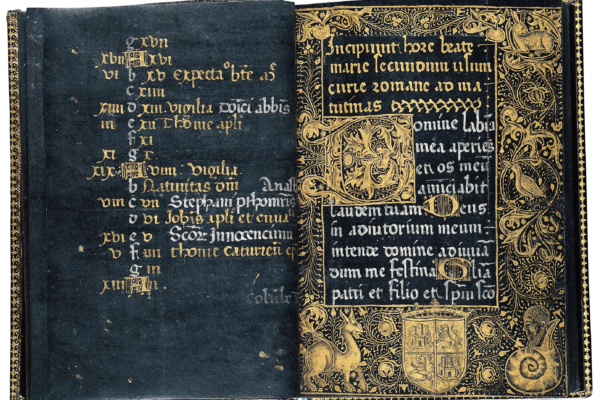 g xvii
A xvi
vi b xv Expectaᵒ bte
c xiiii
xiiii d xiii vigilia abbis
iii e xii Thome apli
f xi
xi g x
xix A viiii vigilia
b Nativitas dni
viii c vii Stephani
d vi Johis apli et
xvi e v Scor Innocencium
v f iiii thome caturien
g iii
xiii A ii
Incipiunt hore beate
marie secundum usum
curie romane ad ma
tutinas
Domine labia
mea aperies
et os meu
anuciabit
laudem tuam Deus
in adiutorium meum
intende domine adiuva
dum me festina Glia
patri et filio et spiui sco